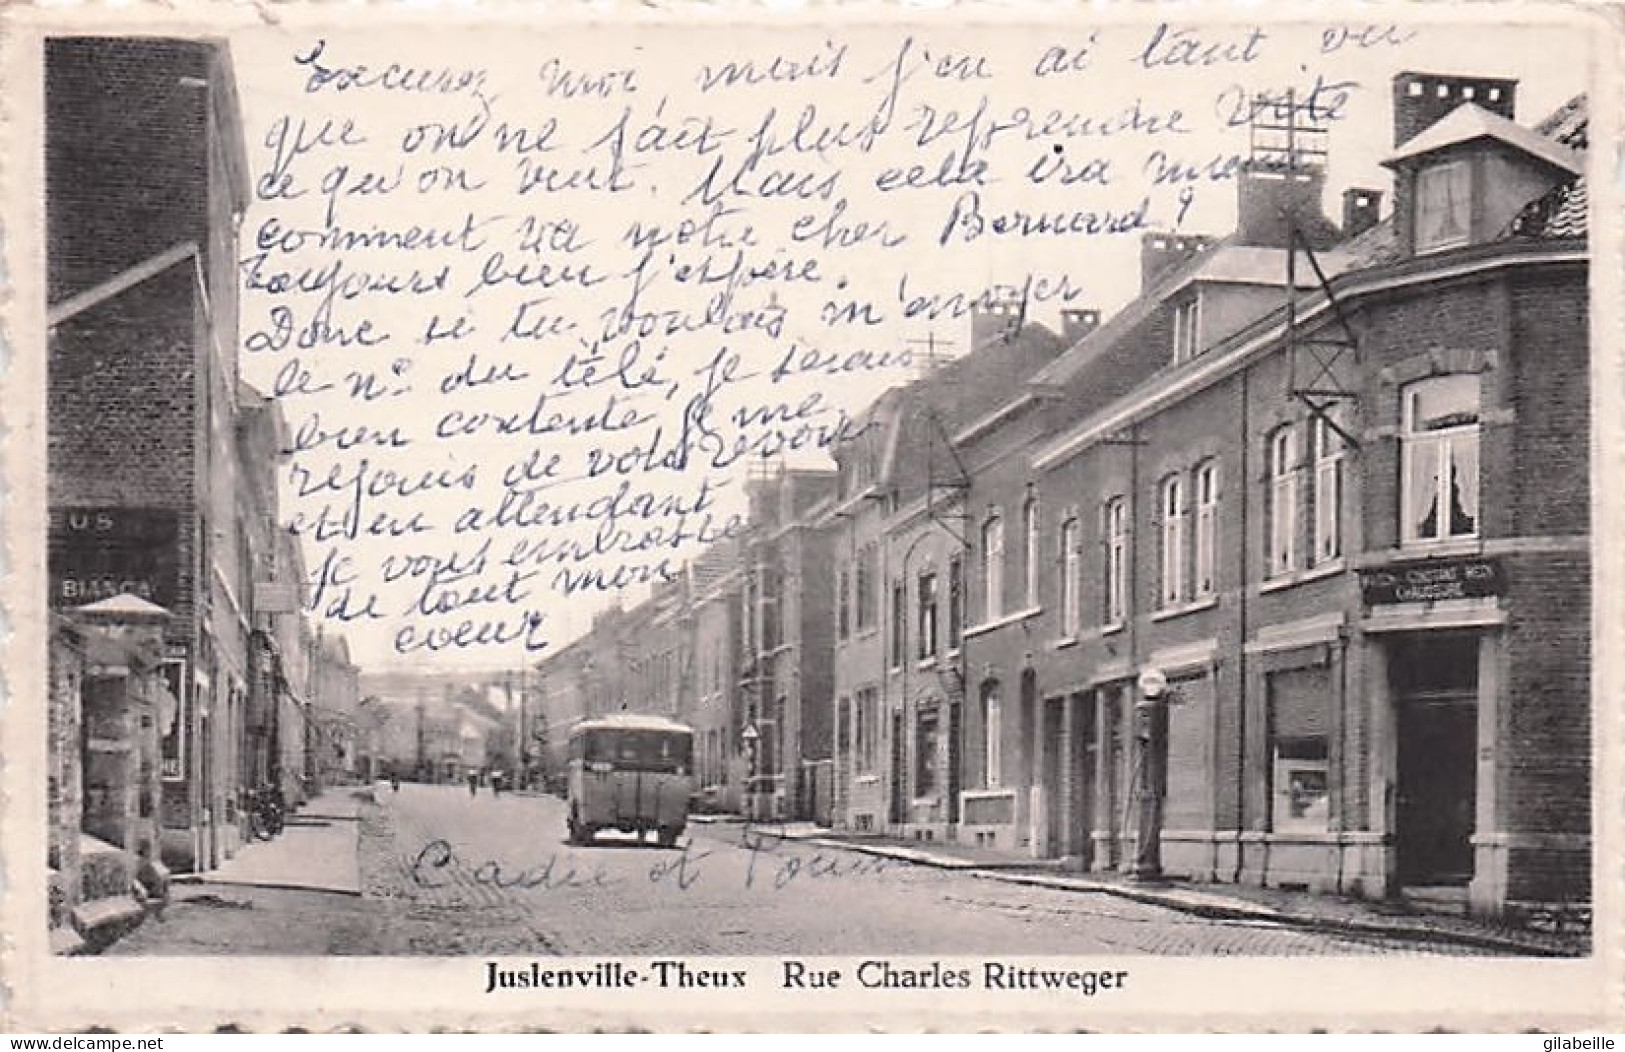 Excusez moi, mais j'en ai tant vu
que on ne sait plus reprendre vite
ce qu'on veut. Mais cela ira mieux
comment va notre cher Bernard ?
toujours bien j'espère.
Donc si tu voulais m'envoyer
le n° du télé, je serais
bien contente je me
rejouis de vous revoir
et en attendant
je vous embrasse
de tout mon
coeur
et
EUS
Juslenville-Theux Rue Charles Rittweger
delcampe.net
gilabeille